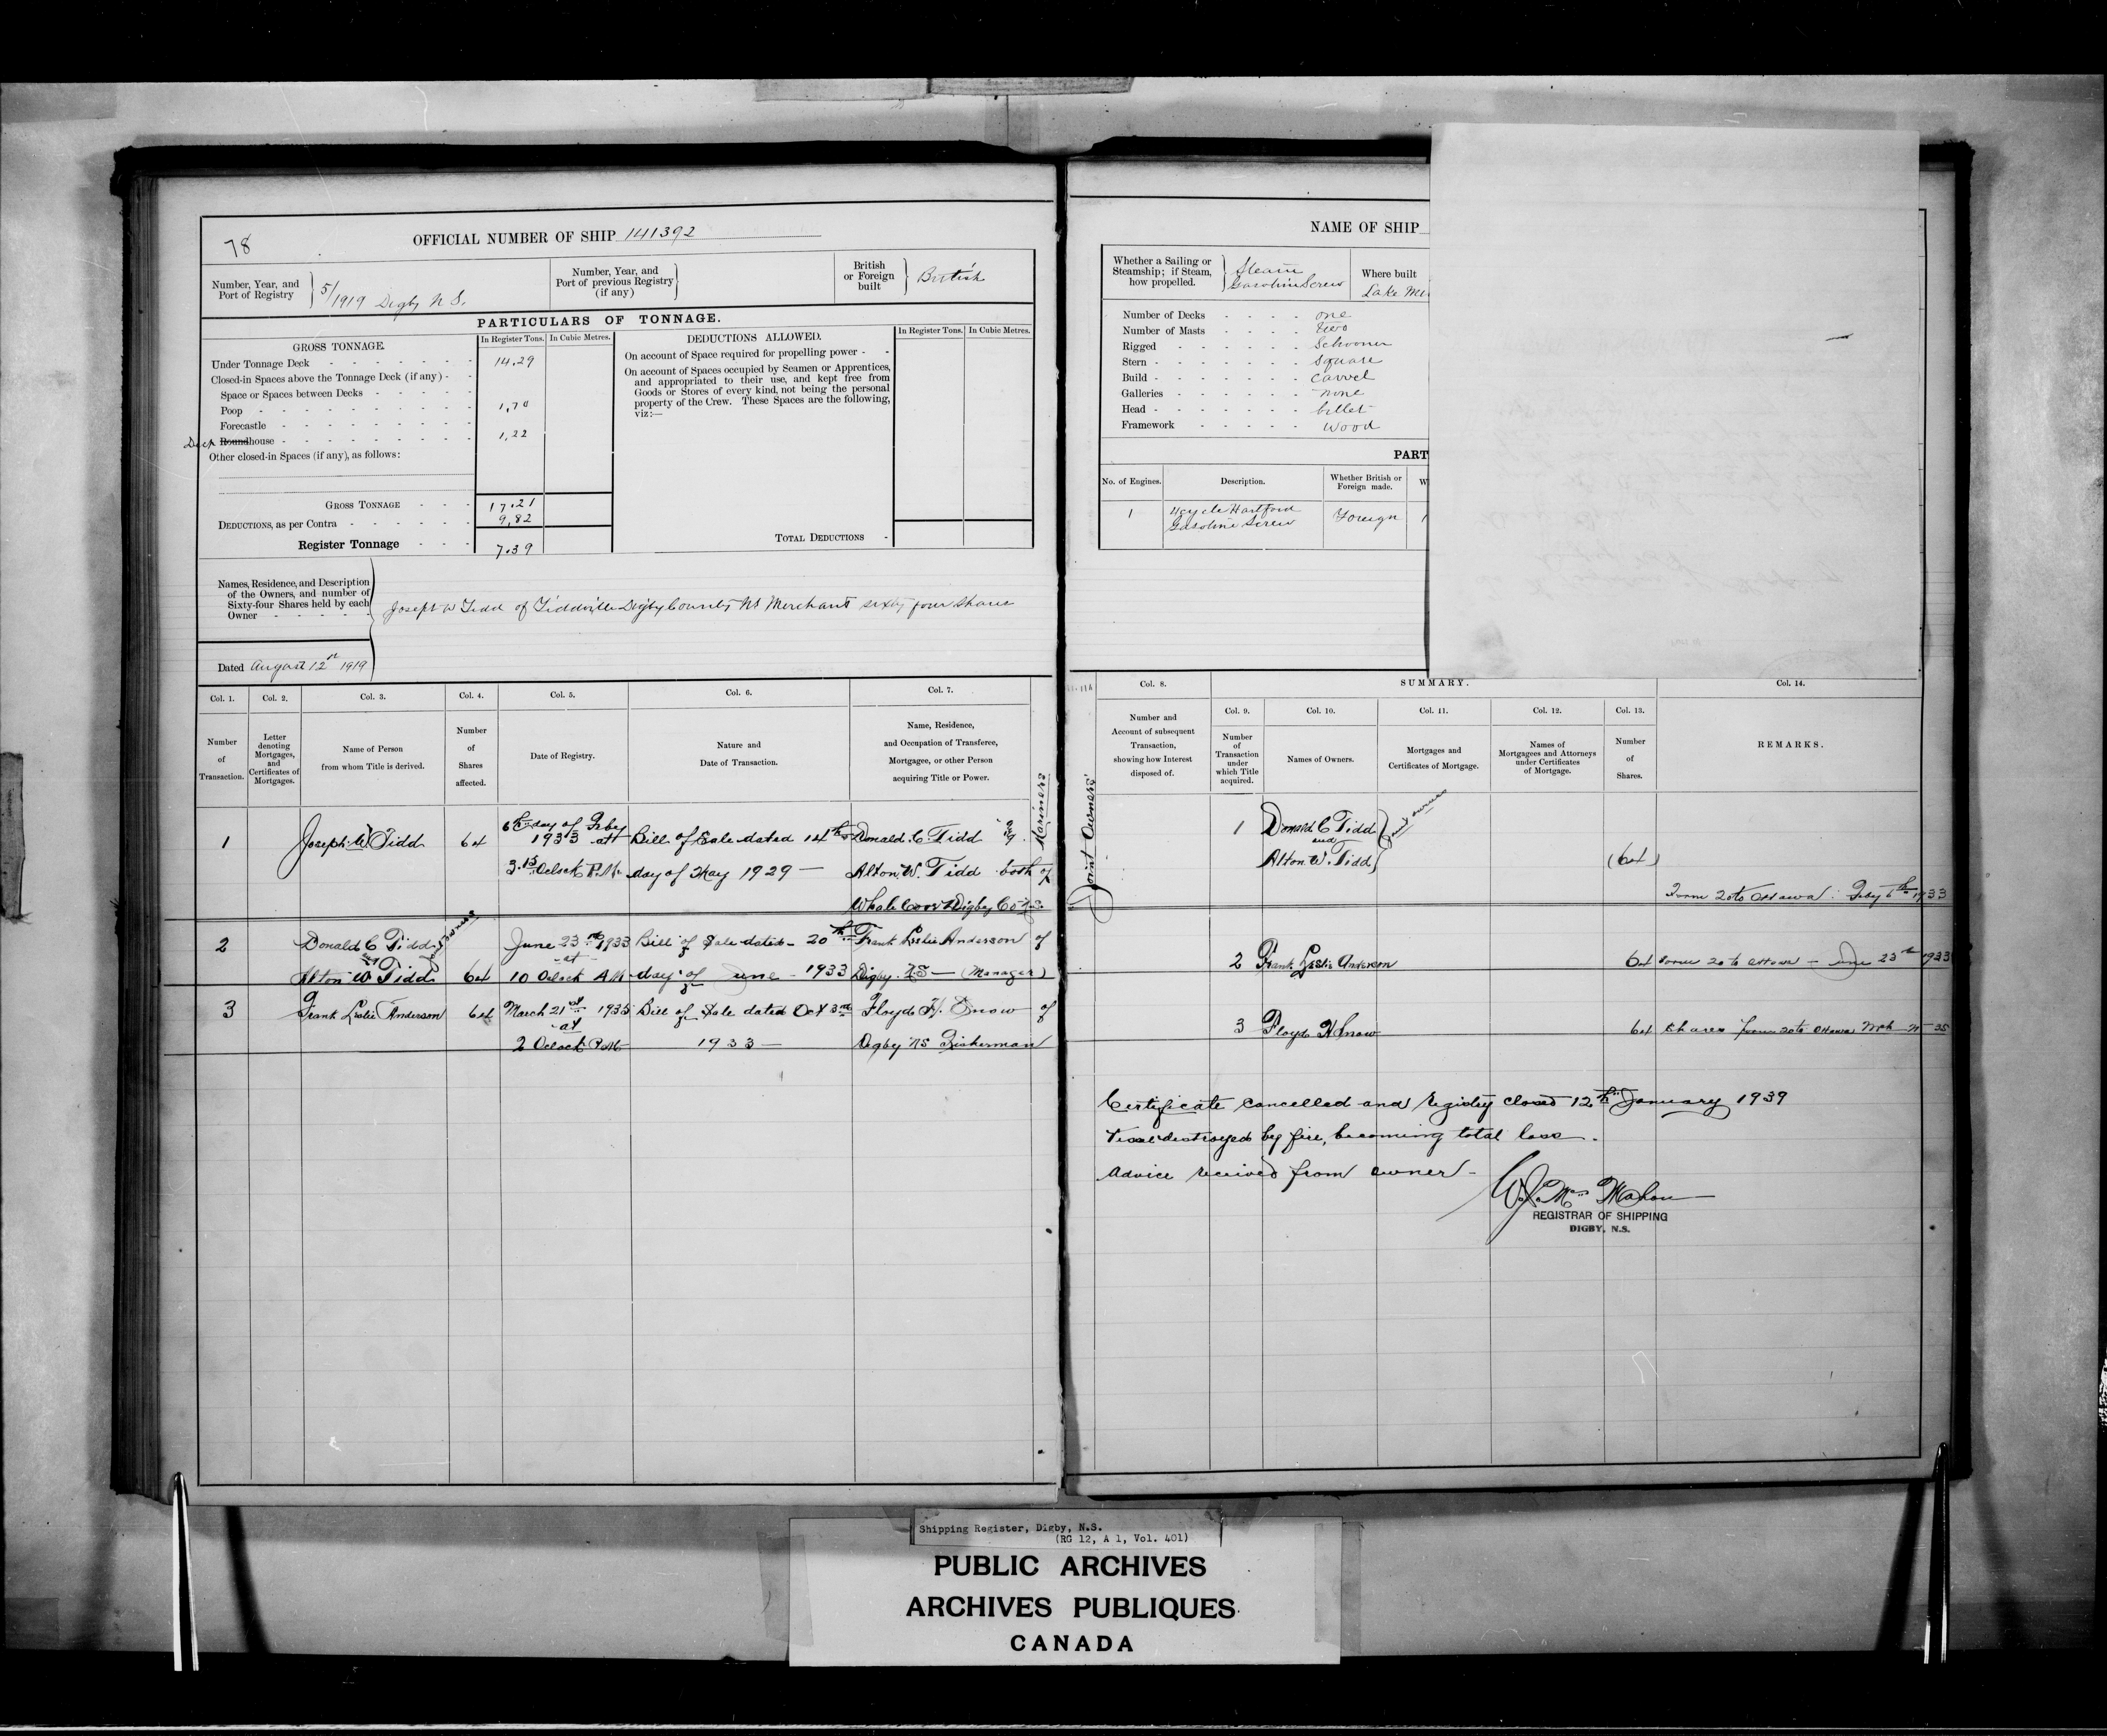 78
OFFICIAL NUMBER OF SHIP 141392
Number, Year, and
Port of Registry
5/1919 Digby N S.
Number, Year, and
Port of previous Registry
(if any)
British
or Foreign
built
British
PARTICULARS OF TONNAGE.
GROSS TONNAGE.
In Register Tons.
In Cubic Metres.
Under Tonnage Deck
14.29
Closed-in Spaces above the Tonnage Deck (if any)
Space or Spaces between Decks
Poop
1.70
Forecastle
Deck Roundhouse
1,22
Other closed-in Spaces (if any), as follows:
GROSS TONNAGE
17.21
DEDUCTIONS, as per Contra
9,82
Register Tonnage
7.39
DEDUCTIONS ALLOWED.
In Register Tons.
In Cubic Metres.
On account of Space required for propelling power
On account of Spaces occupied by Seamen or Apprentices,
and appropriated to their use, and kept free from
Goods or Stores of every kind, not being the personal
property of the Crew. These Spaces are the following,
viz:—
TOTAL DEDUCTIONS
Names, Residence, and Description
of the Owners, and number of
Sixty-four Shares held by each
Owner
Joseph W Tidd of Tiddville Digby County NS Merchant sixty four shares
Dated August 12th 1919
Col. 1.
Col. 2.
Col. 3.
Col. 4.
Col. 5.
Col. 6.
Col. 7.
Number
of
Transaction.
Letter
denoting
Mortgages,
and
Certificates of
Mortgages.
Name of Person
from whom Title is derived.
Number
of
Shares
affected.
Date of Registry.
Nature and
Date of Transaction.
Name, Residence,
and Occupation of Transferee,
Mortgagee, or other Person
acquiring Title or Power.
1
Joseph W. Tidd
64
6th day of Feby
1933 at
3.15 Oclock P.M.
Bill of Sale dated 14th
day of May 1929 —
Donald C Tidd &
Alton. W. Tidd both of
Whale Cove Digby Co N.S.
Mariners
Joint Owners
2
Donald C Tidd
and
Alton W Tidd
Joint owners
64
June 23rd 1933
at
10 Oclock AM
Bill of Sale dated 20th
day of June 1933
Frank Leslie Anderson of
Digby. NS — (Manager)
3
Frank Leslie Anderson
64
March 21st 1935
at
2 Oclock P.M.
Bill of Sale dated Oct 3rd
1933 —
Floyd H. Snow of
Digby NS Fisherman
NAME OF SHIP
Whether a Sailing or
Steamship; if Steam,
how propelled.
Steam
Gasoline Screw
Where built
Lake Me
Number of Decks
one
Number of Masts
two
Rigged
Schooner
Stern
Square
Build
Carvel
Galleries
none
Head
billet
Framework
Wood
PART
No. of Engines.
Description.
Whether British or
Foreign made.
W
1
4 cycle Hartford
Gasoline Screw
Foreign
Col. 8.
SUMMARY.
Col. 14.
Col. 9.
Col. 10.
Col. 11.
Col. 12.
Col. 13.
Number and
Account of subsequent
Transaction,
showing how Interest
disposed of.
Number
of
Transaction
under
which Title
acquired.
Names of Owners.
Mortgages and
Certificates of Mortgage.
Names of
Mortgagees and Attorneys
under Certificates
of Mortgage.
Number
of
Shares.
REMARKS.
1
Donald C Tidd
and
Alton. W. Tidd
Joint owners
(64)
Form 20 to Ottawa. Feby 6th 1933
2 Frank Leslie Anderson
64 Form 20 to Ottawa — June 23rd 1933
3 Floyd H Snow
64 Shares Form 20 to Ottawa
Certificate cancelled and registry closed 12th January 1939
Vessel destroyed by fire, becoming total loss.
Advice received from owner —
REGISTRAR OF SHIPPING
DIGBY, N.S.
Shipping Register, Digby, N.S.
(RG 12, A 1, Vol. 401)
PUBLIC ARCHIVES
ARCHIVES PUBLIQUES
CANADA